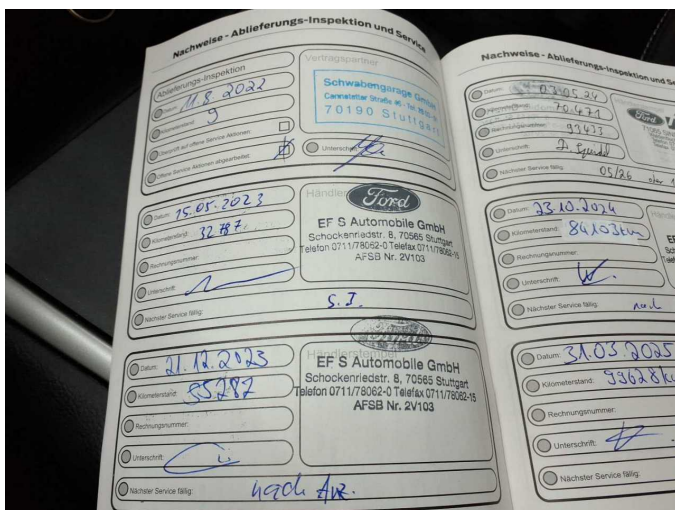 Nachweise - Ablieferungs-Inspektion und Service
Ablieferungs-Inspektion
Datum: 11.8.2022
Kilometerstand: 9
Überprüft auf offene Service Aktionen.
Offene Service Aktionen abgearbeitet.
Vertragspartner
Schwabengarage GmbH
Cannstatter Straße 46
70190 Stuttgart
Unterschrift:
Datum: 15.05.2023
Kilometerstand: 32787
Rechnungsnummer:
Unterschrift:
Nächster Service fällig: S. I.
Händler
Ford
EF S Automobile GmbH
Schockenriedstr. 8, 70565 Stuttgart
Telefon 0711/78062-0 Telefax 0711/78062-15
AFSB Nr. 2V103
Datum: 21.12.2023
Kilometerstand: 55287
Rechnungsnummer:
Unterschrift:
Nächster Service fällig: nach Anz.
Händlerstempel
EF S Automobile GmbH
Schockenriedstr. 8, 70565 Stuttgart
Telefon 0711/78062-0 Telefax 0711/78062-15
AFSB Nr. 2V103
Nachweise - Ablieferungs-Inspektion und Se
Datum: 03.05.24
70.471
Rechnungsnummer: 99423
Unterschrift:
Nächster Service fällig: 05/26 oder
Ford
Datum: 23.10.2024
Kilometerstand: 84103km
Rechnungsnummer:
Unterschrift:
Nächster Service fällig: nach
Datum: 31.03.2025
Kilometerstand: 99628k
Rechnungsnummer:
Unterschrift:
Nächster Service fällig: